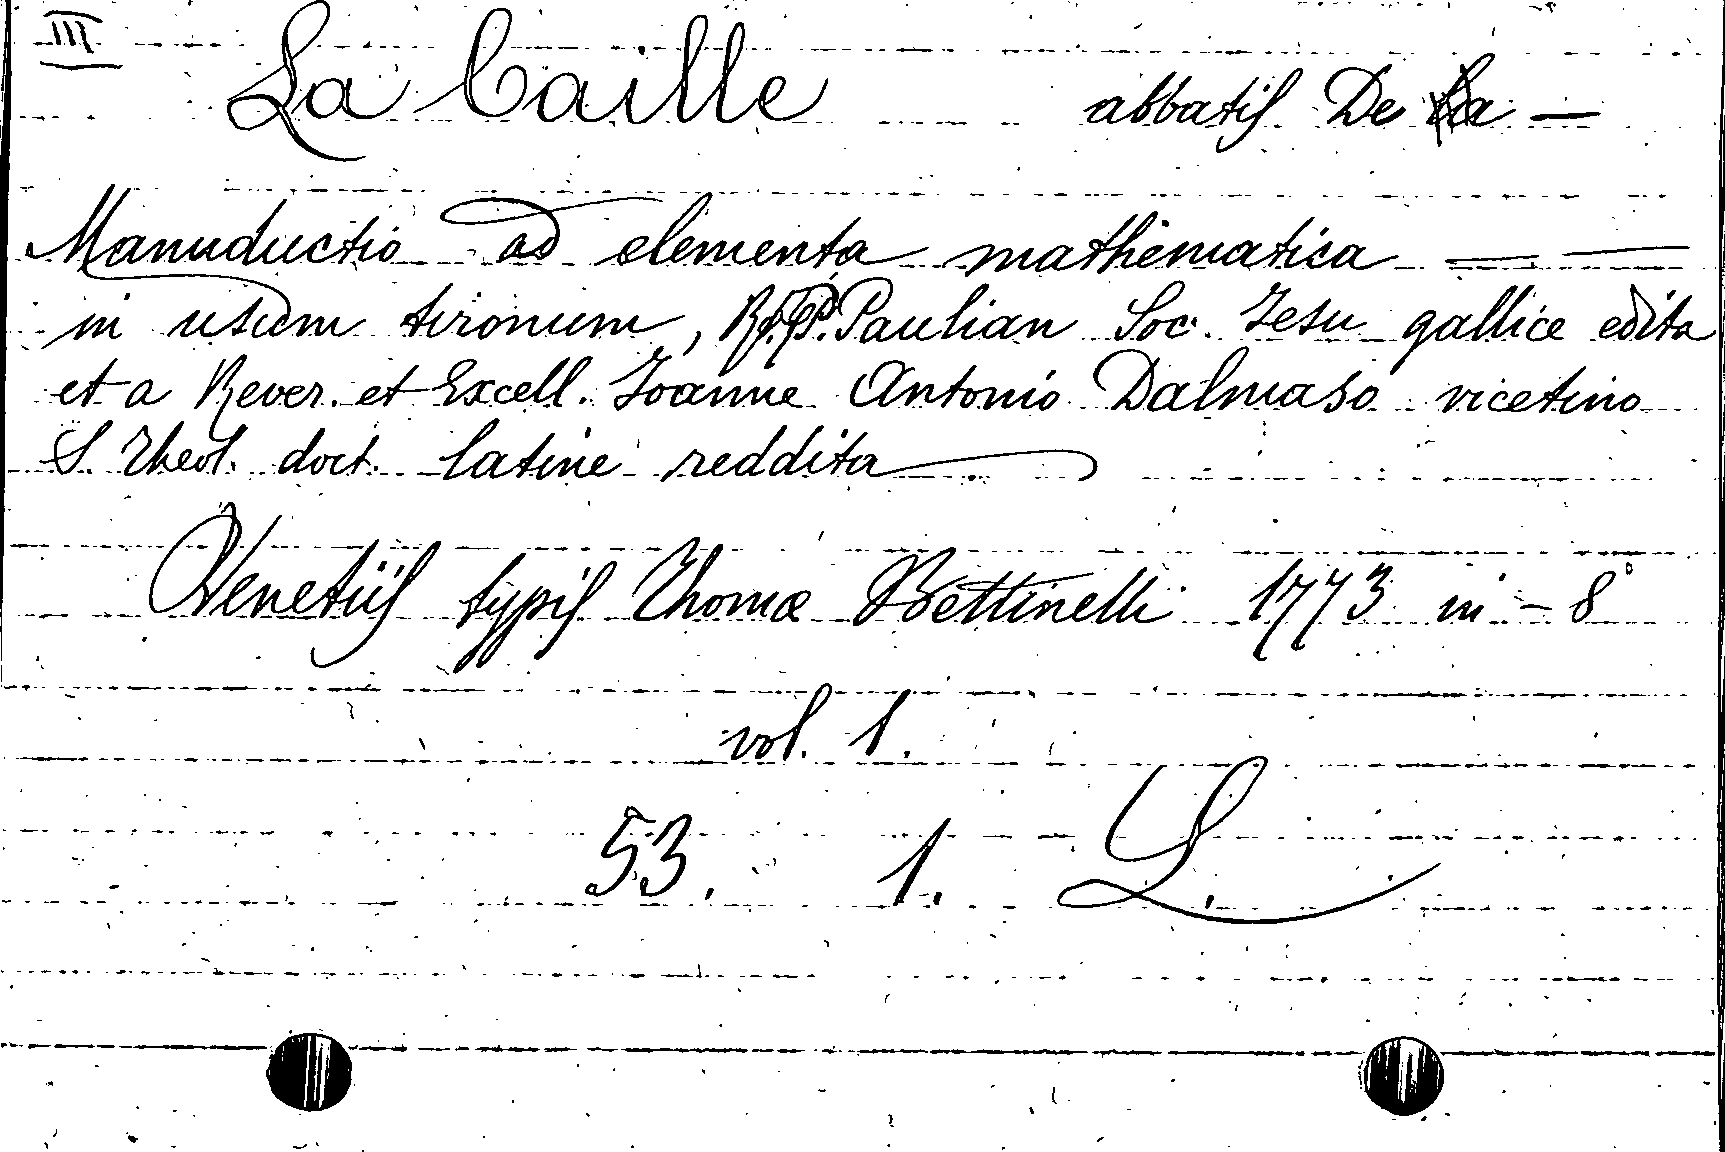 III
La Caille abbatis De La —
Manuductio ad elementa mathematica — —
in usum tironum, R. P. Paulian Soc. Jesu gallice edita
et a Rever. et Excell. Joanne Antonio Dalmaso vicetino
S. Theol. doct. latine reddita
Venetiis typis Thomæ Bettinelli 1773 in - 8°
vol. 1.
53. 1. L.